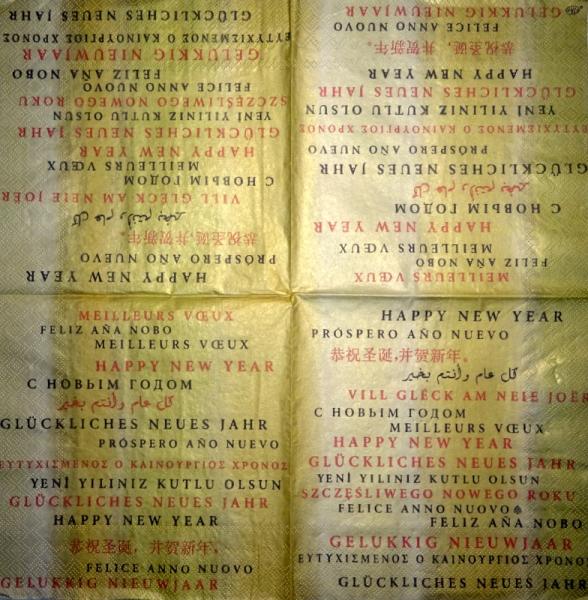 GLÜCKLICHES NEUES JAHR
ΕΥΤΥΧΙΣΜΕΝΟΣ Ο ΚΑΙΝΟΥΡΓΙΟΣ ΧΡΟΝΟΣ
GELUKKIG NIEUWJAAR
FELIZ AÑA NOBO
FELICE ANNO NUOVO
SZCZĘŚLIWEGO NOWEGO ROKU
YENİ YILINIZ KUTLU OLSUN
GLÜCKLICHES NEUES JAHR
HAPPY NEW YEAR
MEILLEURS VŒUX
С НОВЫМ ГОДОМ
VILL GLËCK AM NEIE JOER
كل عام وأنتم بخير
恭祝圣诞，并贺新年。
PRÓSPERO AÑO NUEVO
HAPPY NEW YEAR
GELUKKIG NIEUWJAAR
FELICE ANNO NUOVO
恭祝圣诞，并贺新年。
HAPPY NEW YEAR
GLÜCKLICHES NEUES JAHR
YENİ YILINIZ KUTLU OLSUN
ΕΥΤΥΧΙΣΜΕΝΟΣ Ο ΚΑΙΝΟΥΡΓΙΟΣ ΧΡΟΝΟΣ
PRÓSPERO AÑO NUEVO
GLÜCKLICHES NEUES JAHR
كل عام وأنتم بخير
С НОВЫМ ГОДОМ
HAPPY NEW YEAR
MEILLEURS VŒUX
FELIZ AÑA NOBO
MEILLEURS VŒUX
MEILLEURS VŒUX
FELIZ AÑA NOBO
MEILLEURS VŒUX
HAPPY NEW YEAR
С НОВЫМ ГОДОМ
كل عام وأنتم بخير
GLÜCKLICHES NEUES JAHR
PRÓSPERO AÑO NUEVO
ΕΥΤΥΧΙΣΜΕΝΟΣ Ο ΚΑΙΝΟΥΡΓΙΟΣ ΧΡΟΝΟΣ
YENİ YILINIZ KUTLU OLSUN
GLÜCKLICHES NEUES JAHR
HAPPY NEW YEAR
恭祝圣诞，并贺新年。
FELICE ANNO NUOVO
GELUKKIG NIEUWJAAR
HAPPY NEW YEAR
PRÓSPERO AÑO NUEVO
恭祝圣诞，并贺新年。
كل عام وأنتم بخير
VILL GLËCK AM NEIE JOER
С НОВЫМ ГОДОМ
MEILLEURS VŒUX
HAPPY NEW YEAR
GLÜCKLICHES NEUES JAHR
YENİ YILINIZ KUTLU OLSUN
SZCZĘŚLIWEGO NOWEGO ROKU
FELICE ANNO NUOVO
FELIZ AÑA NOBO
GELUKKIG NIEUWJAAR
ΕΥΤΥΧΙΣΜΕΝΟΣ Ο ΚΑΙΝΟΥΡΓΙΟΣ ΧΡΟΝΟΣ
GLÜCKLICHES NEUES JAHR